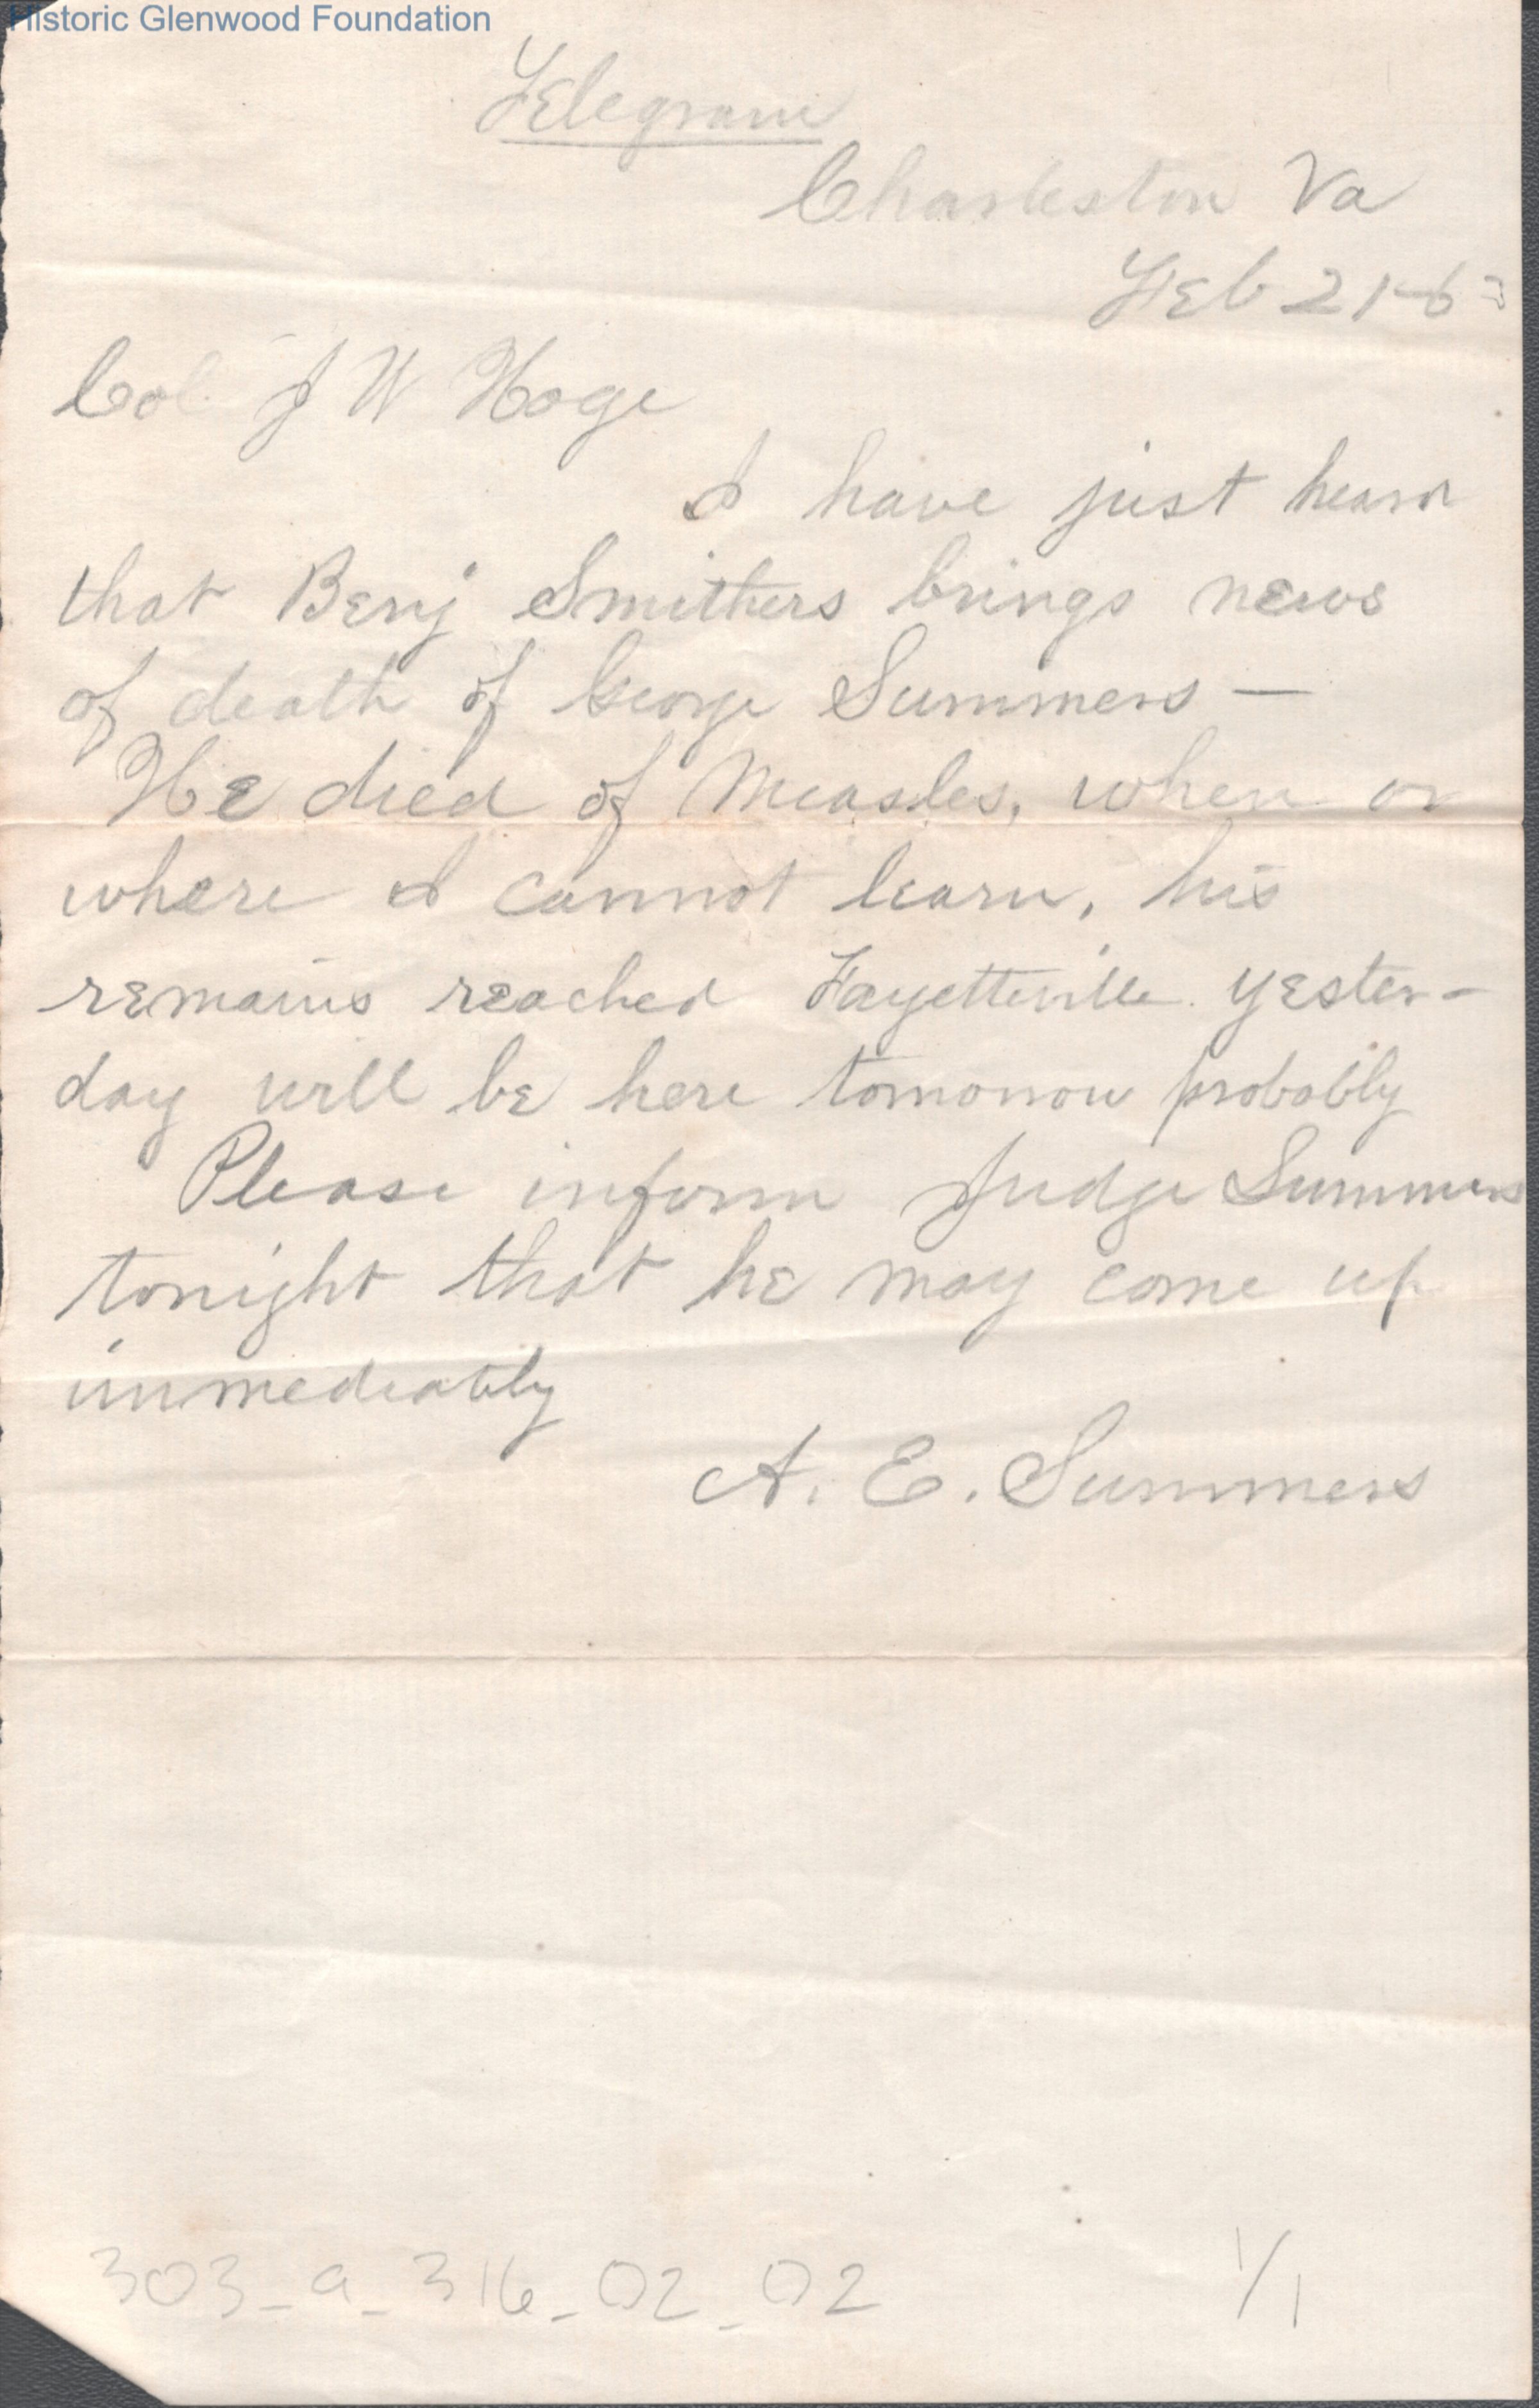 Historic Glenwood Foundation
Telegram
Charleston Va
Feb 21-63
Col J W Hoge
I have just heard
that Benj Smithers brings news
of death of George Summers —
He died of Measles, when or
where I cannot learn, his
remains reached Fayetteville yester-
day will be here tomorrow probably
Please inform Judge Summers
tonight that he may come up
immediately
A. E. Summers
303_a_316_02_02 1/1